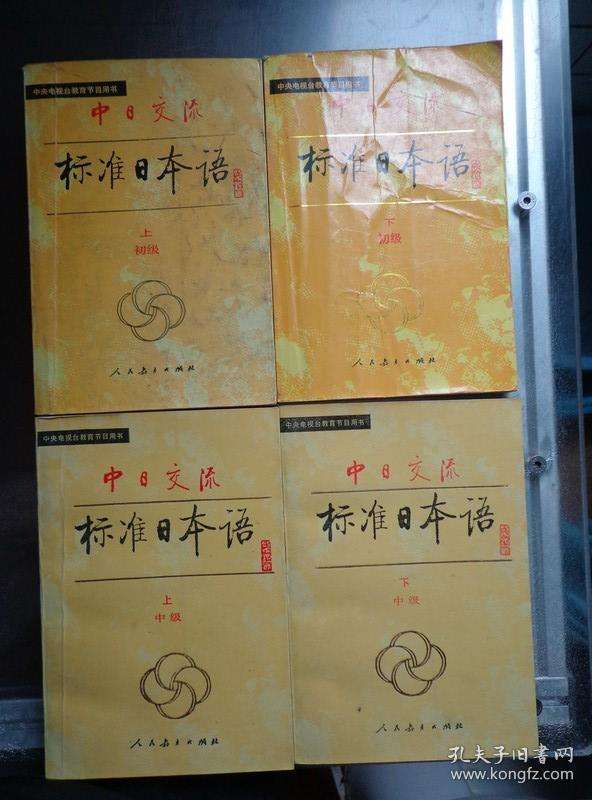 中央电视台教育节目用书
中日交流
标准日本语
上
初级
人民教育出版社
中央电视台教育节目用书
中日交流
标准日本语
下
初级
人民教育出版社
中央电视台教育节目用书
中日交流
标准日本语
上
中级
人民教育出版社
中央电视台教育节目用书
中日交流
标准日本语
下
中级
人民教育出版社
孔夫子旧书网
www.kongfz.com